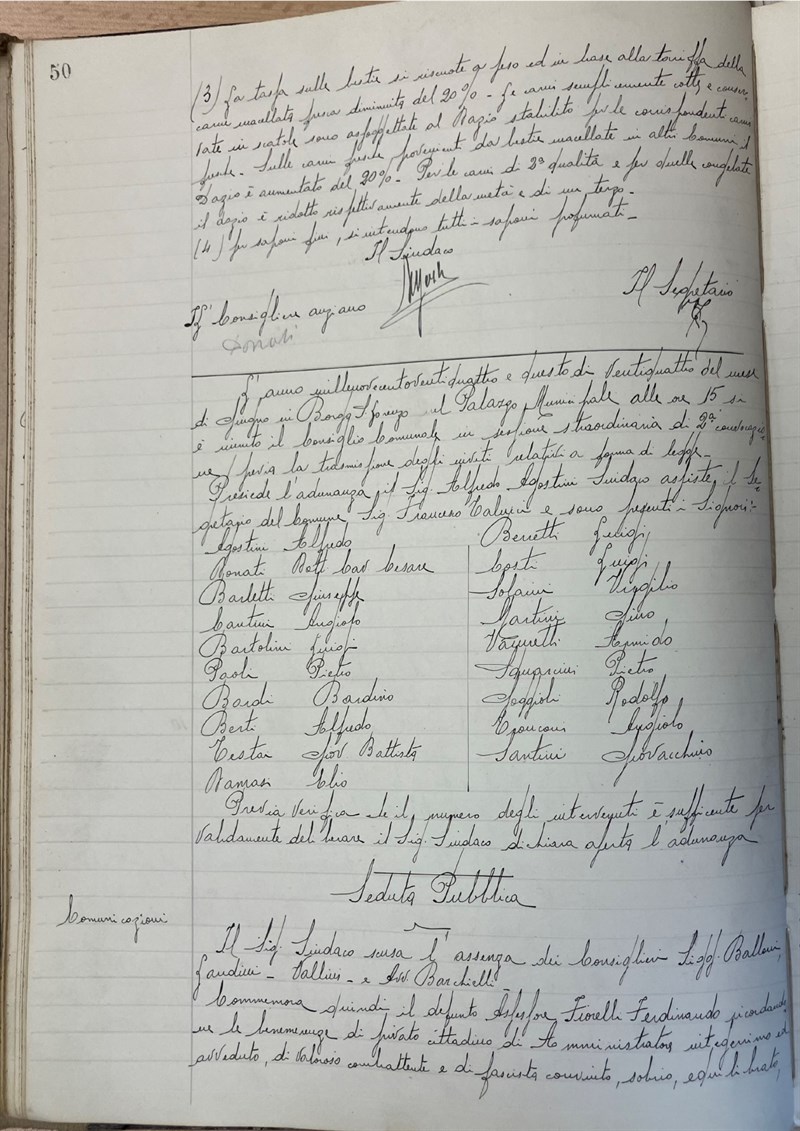 50
(3) La tassa sulle bestie si riscuote a peso ed in base alla tariffa della
carne macellata fresca diminuita del 20% - Le carni semplicemente cotte e conser-
vate in scatole sono assoggettate al Dazio stabilito per le corrispondenti carni
fresche - Sulle carni fresche provenienti da bestie macellate in altri Comuni il
Dazio è aumentato del 20% - Per le carni di 2ª qualità e per quelle congelate
il dazio è ridotto rispettivamente della metà e di un terzo -
(4) Per saponi fini, si intendono tutti i saponi profumati -
Il Sindaco
Il Segretario
Il Consigliere anziano
Donati
L'anno millenovecentoventiquattro e questo dì Ventiquattro del mese
di Giugno in Borgo S. Lorenzo nel Palazzo Municipale alle ore 15 si
è riunito il Consiglio Comunale in sessione straordinaria di 2ª convocazio-
ne, previa la trasmissione degli inviti relativi a forma di legge -
Presiede l'adunanza il Sig. Alfredo Agostini Sindaco assiste il Se-
gretario del Comune Sig. Francesco e sono presenti i Signori:-
Agostini Alfredo
Donati Dott. Cav Cesare
Barletti Giuseppe
Cantini Angiolo
Bartolini Luigi
Paoli Pietro
Bardi Bardino
Berti Alfredo
Testai Giov Battista
Damasi Clio
Berretti Luigi
Costi Luigi
Solaini Virgilio
Martini Gino
Vannetti Armido
Squarcini Pietro
Poggioli Rodolfo
Tronconi Angiolo
Santini Giovacchino
Previa verifica se il numero degli intervenuti è sufficente per
validamente deliberare il Sig. Sindaco dichiara aperta l'adunanza
Seduta Pubblica
Comunicazioni
Il Sig. Sindaco scusa l'assenza dei Consiglieri Sigg. Ballani,
Landini - Vallini - e Avv. Barchielli -
Commemora quindi il defunto Assessore Fiorelli Ferdinando ricordando-
ne le benemerenze di privato cittadino di Amministratore integerrimo ed
avveduto, di valoroso combattente e di fascista convinto, sobrio, equilibrato,